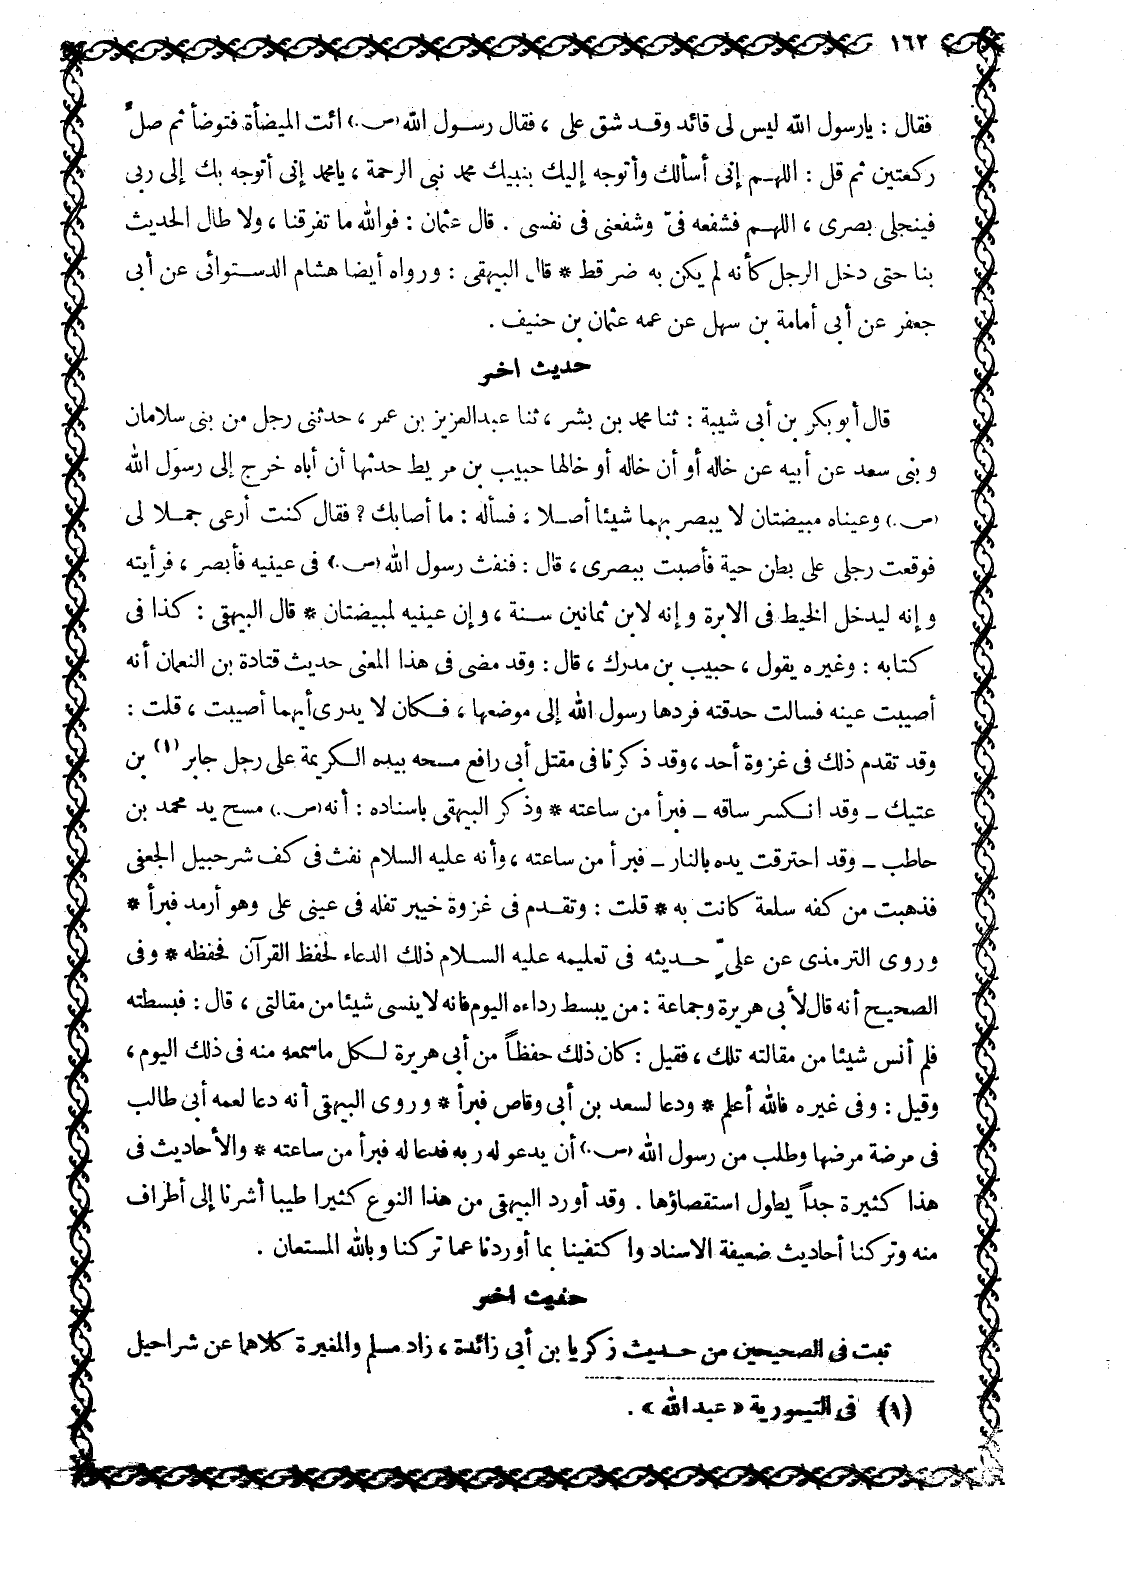 ١٦٢
فقال : يارسول الله ليس لى قائد وقد شق على ، فقال رسول الله (ص.) ائت الميضأة فتوضأ ثم صلّ
ركعتين ثم قل : اللهم إنى أسألك وأتوجه إليك بنبيك محمد نبى الرحمة ، يامحمد إنى أتوجه بك إلى ربى
فينجلى بصرى ، اللهم فشفعه فىّ وشفعنى فى نفسى . قال عثمان : فوالله ما تفرقنا ، ولا طال الحديث
بنا حتى دخل الرجل كأنه لم يكن به ضر قط * قال البيهقى : ورواه أيضا هشام الدستوائى عن أبى
جعفر عن أبى أمامة بن سهل عن عمه عثمان بن حنيف .
حديث اخر
قال أبو بكر بن أبى شيبة : ثنا محمد بن بشر ، ثنا عبدالعزيز بن عمر ، حدثنى رجل من بنى سلامان
وبنى سعد عن أبيه عن خاله أو أن خاله أو خالها حبيب بن مريط حدثها أن أباه خرج إلى رسول الله
(ص.) وعيناه مبيضتان لا يبصر بهما شيئا أصلا ، فسأله : ما أصابك ؟ فقال كنت أرعى جملا لى
فوقعت رجلى على بطن حية فأصبت ببصرى ، قال : فنفث رسول الله (ص.) فى عينيه فأبصر ، فرأيته
وإنه ليدخل الخيط فى الابرة وإنه لابن ثمانين سنة ، وإن عينيه لمبيضتان * قال البيهقى : كذا فى
كتابه : وغيره يقول ، حبيب بن مدرك ، قال : وقد مضى فى هذا المعنى حديث قتادة بن النعمان أنه
أصيبت عينه فسالت حدقته فردها رسول الله إلى موضعها ، فكان لا يدرى أيهما أصيبت ، قلت :
وقد تقدم ذلك فى غزوة أحد ، وقد ذكرنا فى مقتل أبى رافع مسحه بيده الكريمة على رجل جابر (١) بن
عتيك ـ وقد انكسر ساقه ـ فبرأ من ساعته * وذكر البيهقى باسناده : أنه (ص.) مسح يد محمد بن
حاطب ـ وقد احترقت يده بالنار ـ فبرأ من ساعته ، وأنه عليه السلام نفث فى كف شرحبيل الجعفى
فذهبت من كفه سلعة كانت به * قلت : وتقدم فى غزوة خيبر تفله فى عينى على وهو أرمد فبرأ *
وروى الترمذى عن علىّ حديثه فى تعليمه عليه السلام ذلك الدعاء لحفظ القرآن فحفظه * وفى
الصحيح أنه قال لأبى هريرة وجماعة : من يبسط رداءه اليوم فانه لا ينسى شيئا من مقالتى ، قال : فبسطته
فلم أنس شيئا من مقالته تلك ، فقيل : كان ذلك حفظاً من أبى هريرة لكل ما سمعه منه فى ذلك اليوم ،
وقيل : وفى غيره فالله أعلم * ودعا لسعد بن أبى وقاص فبرأ * وروى البيهقى أنه دعا لعمه أبى طالب
فى مرضة مرضها وطلب من رسول الله (ص.) أن يدعو له ربه فدعا له فبرأ من ساعته * والأحاديث فى
هذا كثيرة جداً يطول استقصاؤها . وقد أورد البيهقى من هذا النوع كثيرا طيبا أشرنا إلى أطراف
منه وتركنا أحاديث ضعيفة الاسناد واكتفينا بما أوردنا عما تركنا وبالله المستعان .
حديث اخر
ثبت فى الصحيحين من حديث زكريا بن أبى زائدة ، زاد مسلم والمغيرة كلاهما عن شراحيل
(١) فى التيمورية « عبد الله » .